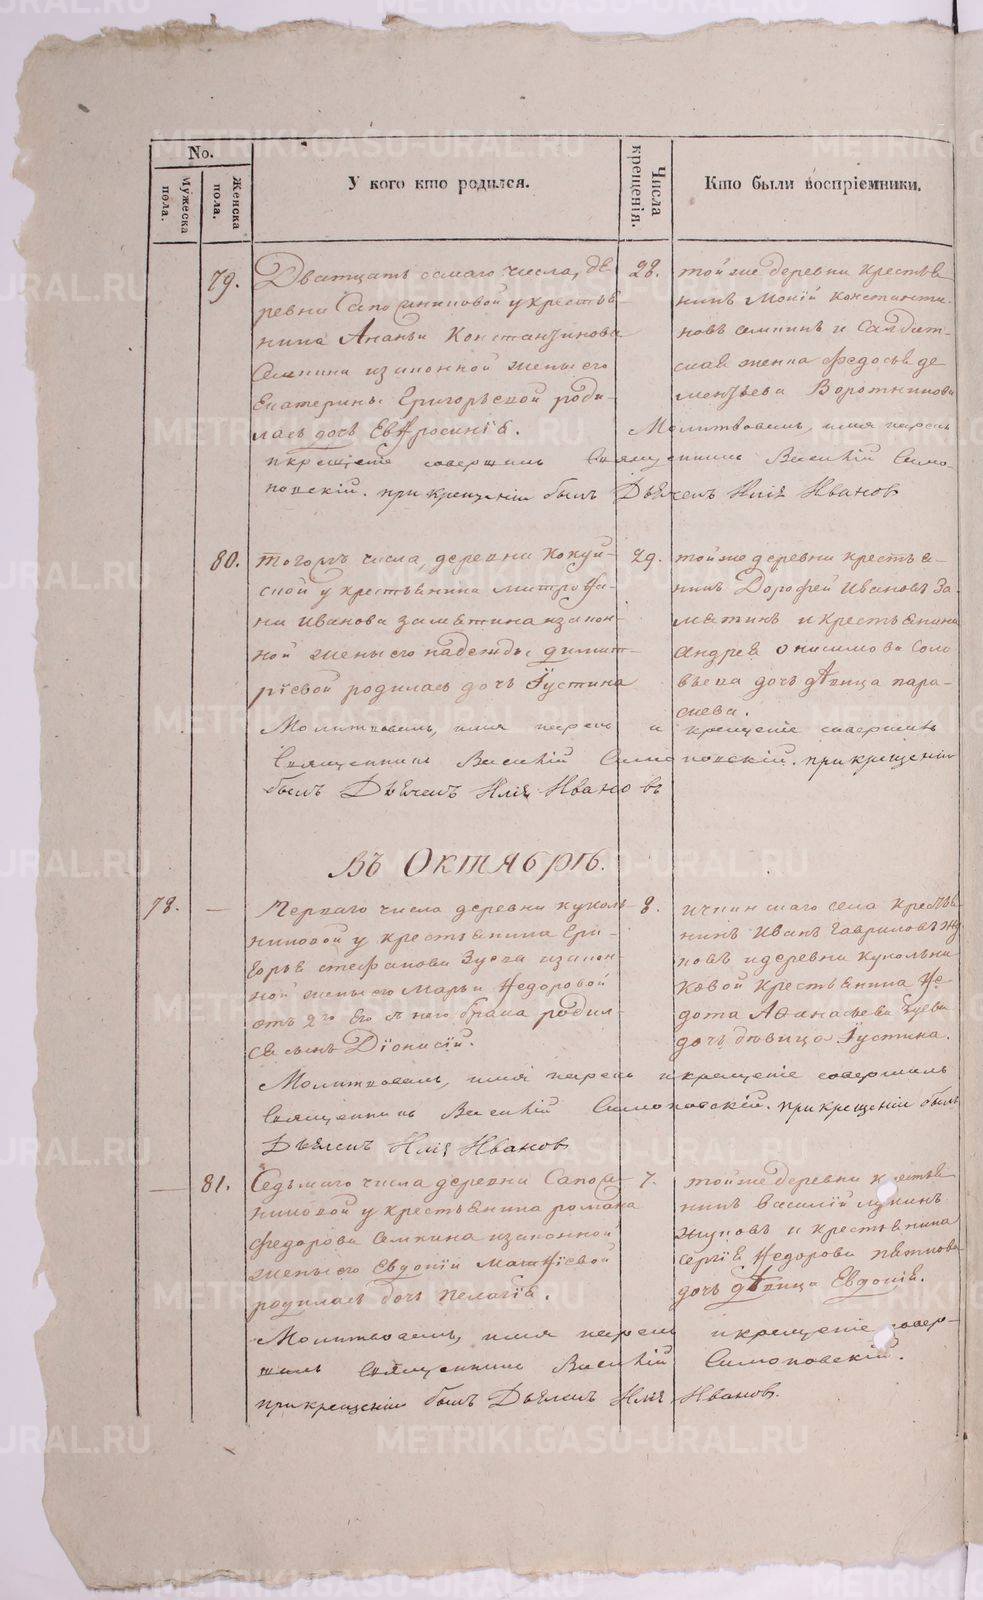 No.
Мужеска пола.
Женска пола.
У кого кто родился.
Числа крещенія.
Кто были воспріемники.
79.
Дватцать осмаго числа, де
ревни Сапо книковой у крестья
нина Ананьи Константинова
Семкина изаконной жены его
Екатерины Григорьевой роди
лась дочь Евфросинія.
28.
тойже деревни крестья
нинъ Мокій Константи
новъ Семкинъ и Салдат
ская жена Федосья де
ментьева Воротникова
Молитвовалъ, имя нарекъ
и крещеніе совершилъ Священникъ Василій Симо
новскій. при крещеніи былъ Дьячекъ Илія Ивановъ
80.
тогожъ числа, деревни Кокуй
ской у крестьянина митрофа
ни Иванова заметина изакон
ной жены его надежды димит
ріевой родилась дочь Іустина
29.
тойже деревни крестья
нинъ Дорофей Ивановъ За
метинъ и крестьянина
андрея онисимова Соло
вьева дочь дѣвица пара
скева.
Молитвовалъ, имя нарекъ и крещеніе совершилъ
Священникъ Василій Симоновскій. при крещеніи
былъ Дьячекъ Илія Ивановъ
Въ Октябрѣ.
78.
Перваго числа деревни куколь
никовой у крестьянина Гри
горья стефанова Зуева изакон
ной жены его Марьи Федоровой
отъ 2го Его брака родил
ся сынъ Діонисій.
8.
Ичкинскаго села крестья
нинъ Иванъ Гавриловъ Жу
ковъ и деревни кукольни
ковой крестьянина Фе
дота Афанасьева Зуева
дочь дѣвица Іустина.
Молитвовалъ, имя нарекъ и крещеніе совершилъ
Священникъ Василій Симоновскій. при крещеніи былъ
Дьячекъ Илія Ивановъ
81.
Седьмаго числа деревни Сапож
никовой у крестьянина романа
федорова Семкина изаконной
жены его Евдокіи матфіевой
родилась дочь Пелагія.
7.
тойже деревни крестья
нинъ Василій лукинъ
Жуковъ и крестьянина
сергія Федорова пяткова
дочь дѣвица Евдокія.
Молитвовалъ, имя нарекъ и крещеніе совер
шилъ Священникъ Василій Симоновскій.
при крещеніи былъ Дьячекъ Илія Ивановъ.
METRIKI.GASO-URAL.RU